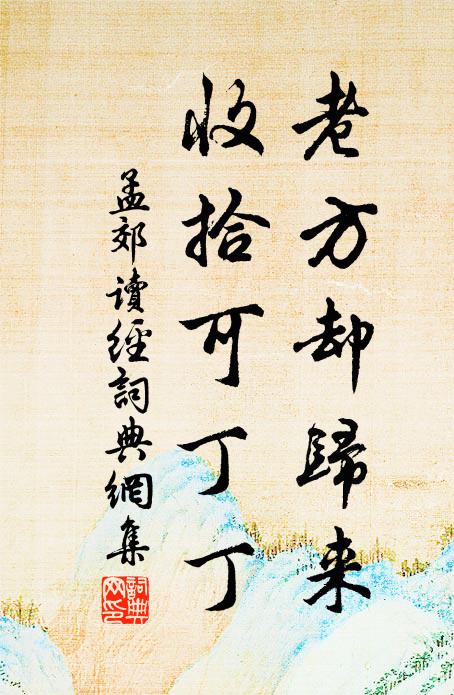 老方却歸来
收拾可丁丁
孟郊讀經詞典網集
詞典網印